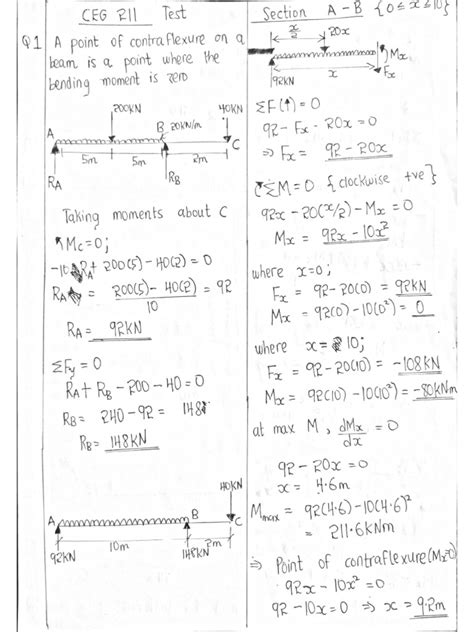 CEG 211 Test
Q1 A point of contraflexure on a
beam is a point where the
bending moment is zero
200KN
40KN
A
B 20KN/m
C
5m
5m
2m
RA
RB
Taking moments about C
Mc=0;
RA+ 200(5) - 40(2) = 0
RA = 200(5) - 40(2) = 92
10
RA = 92KN
ΣFy = 0
RA + RB - 200 - 40 = 0
RB = 240 - 92 = 148
RB = 148KN
40KN
A
B
C
10m
2m
92KN
148KN
Section A - B {0≤x≤10}
x/2
20x
Mx
x
Fx
92KN
ΣF(↑) = 0
92 - Fx - 20x = 0
⇒ Fx = 92 - 20x
ΣM = 0 {clockwise +ve}
92x - 20(x/2) - Mx = 0
Mx = 92x - 10x²
where x=0;
Fx = 92 - 20(0) = 92KN
Mx = 92(0) - 10(0²) = 0
where x = 10;
Fx = 92 - 20(10) = -108KN
Mx = 92(10) - 10(10²) = -80KNm
at max M, dMx/dx = 0
92 - 20x = 0
x = 4.6m
Mmax = 92(4.6) - 10(4.6)²
= 211.6KNm
⇒ Point of contraflexure (Mx=0)
92x - 10x² = 0
92 - 10x = 0 ⇒ x = 9.2m